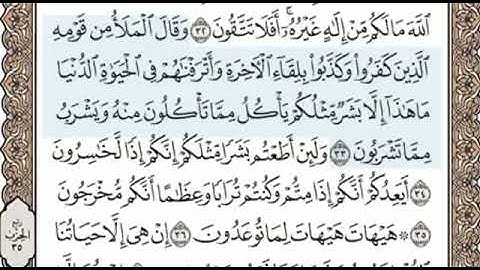 ٱللَّهَ مَا لَكُم مِّنْ إِلَٰهٍ غَيْرُهُۥٓ ۚ أَفَلَا تَتَّقُونَ ٣٢ وَقَالَ ٱلْمَلَأُ مِن قَوْمِهِ
ٱلَّذِينَ كَفَرُوا۟ وَكَذَّبُوا۟ بِلِقَآءِ ٱلْـَٔاخِرَةِ وَأَتْرَفْنَٰهُمْ فِى ٱلْحَيَوٰةِ ٱلدُّنْيَا
مَا هَٰذَآ إِلَّا بَشَرٌ مِّثْلُكُمْ يَأْكُلُ مِمَّا تَأْكُلُونَ مِنْهُ وَيَشْرَبُ
مِمَّا تَشْرَبُونَ ٣٣ وَلَئِنْ أَطَعْتُم بَشَرًا مِّثْلَكُمْ إِنَّكُمْ إِذًا لَّخَٰسِرُونَ
٣٤ أَيَعِدُكُمْ أَنَّكُمْ إِذَا مِتُّمْ وَكُنتُمْ تُرَابًا وَعِظَٰمًا أَنَّكُم مُّخْرَجُونَ
٣٥ ۞ هَيْهَاتَ هَيْهَاتَ لِمَا تُوعَدُونَ ٣٦ إِنْ هِىَ إِلَّا حَيَاتُنَا
ربع
الحزب
٣٥